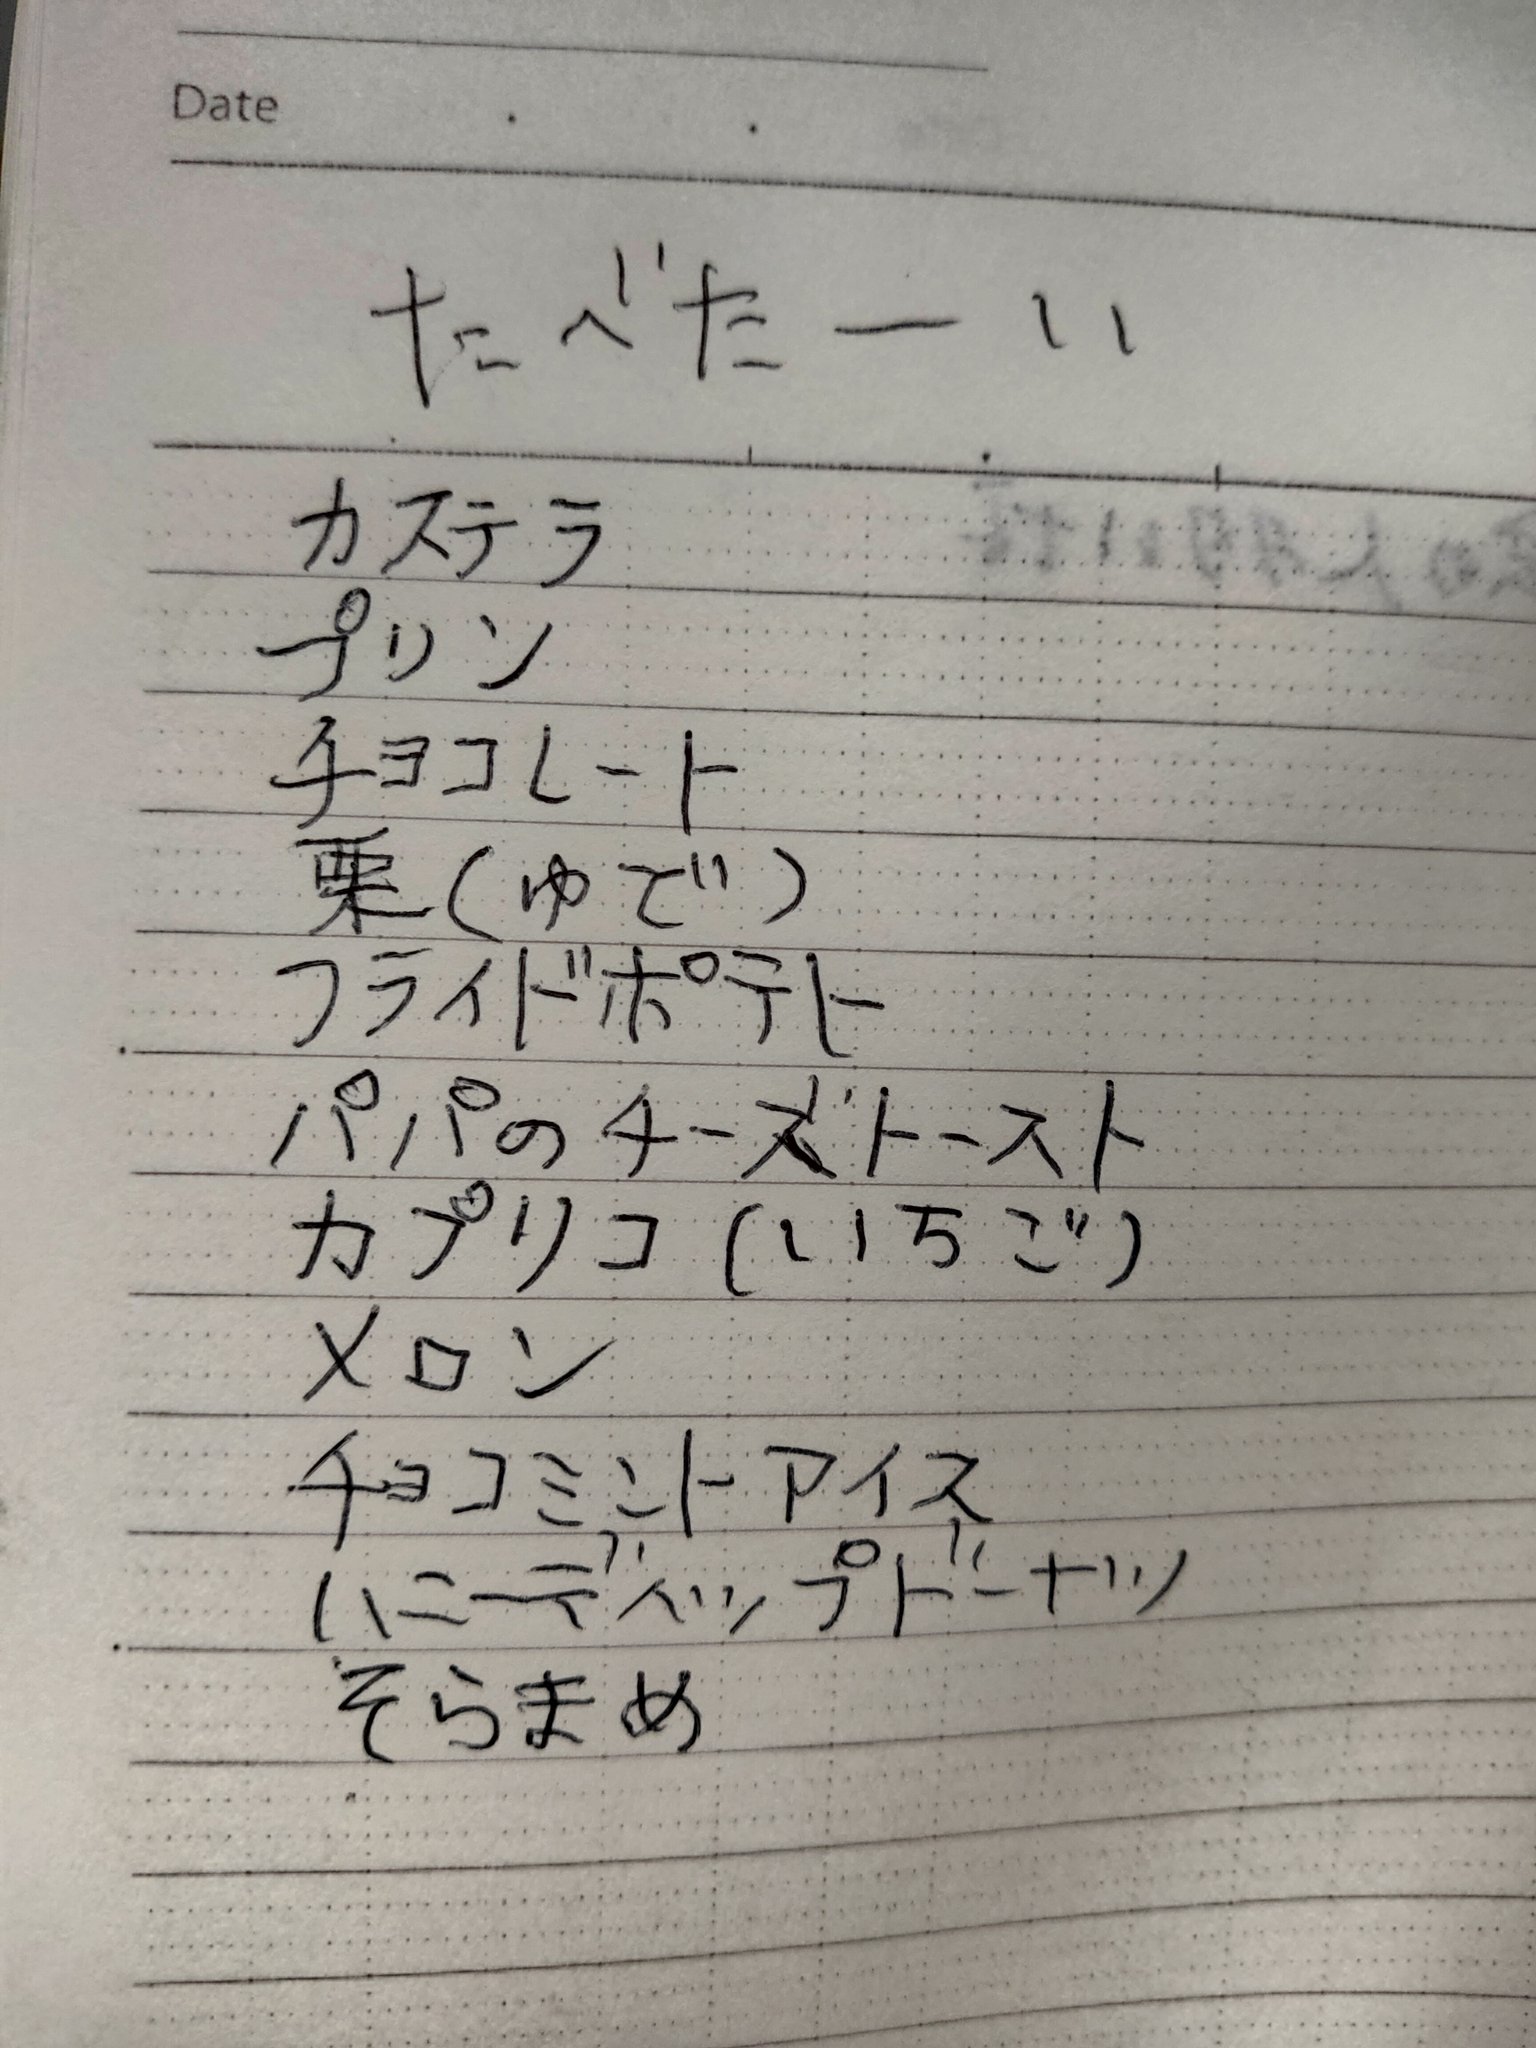 Date
たべたーい
カステラ
プリン
チョコレート
栗(ゆで)
フライドポテト
パパのチーズトースト
カプリコ(いちご)
メロン
チョコミントアイス
ハニーディップドーナツ
そらまめ